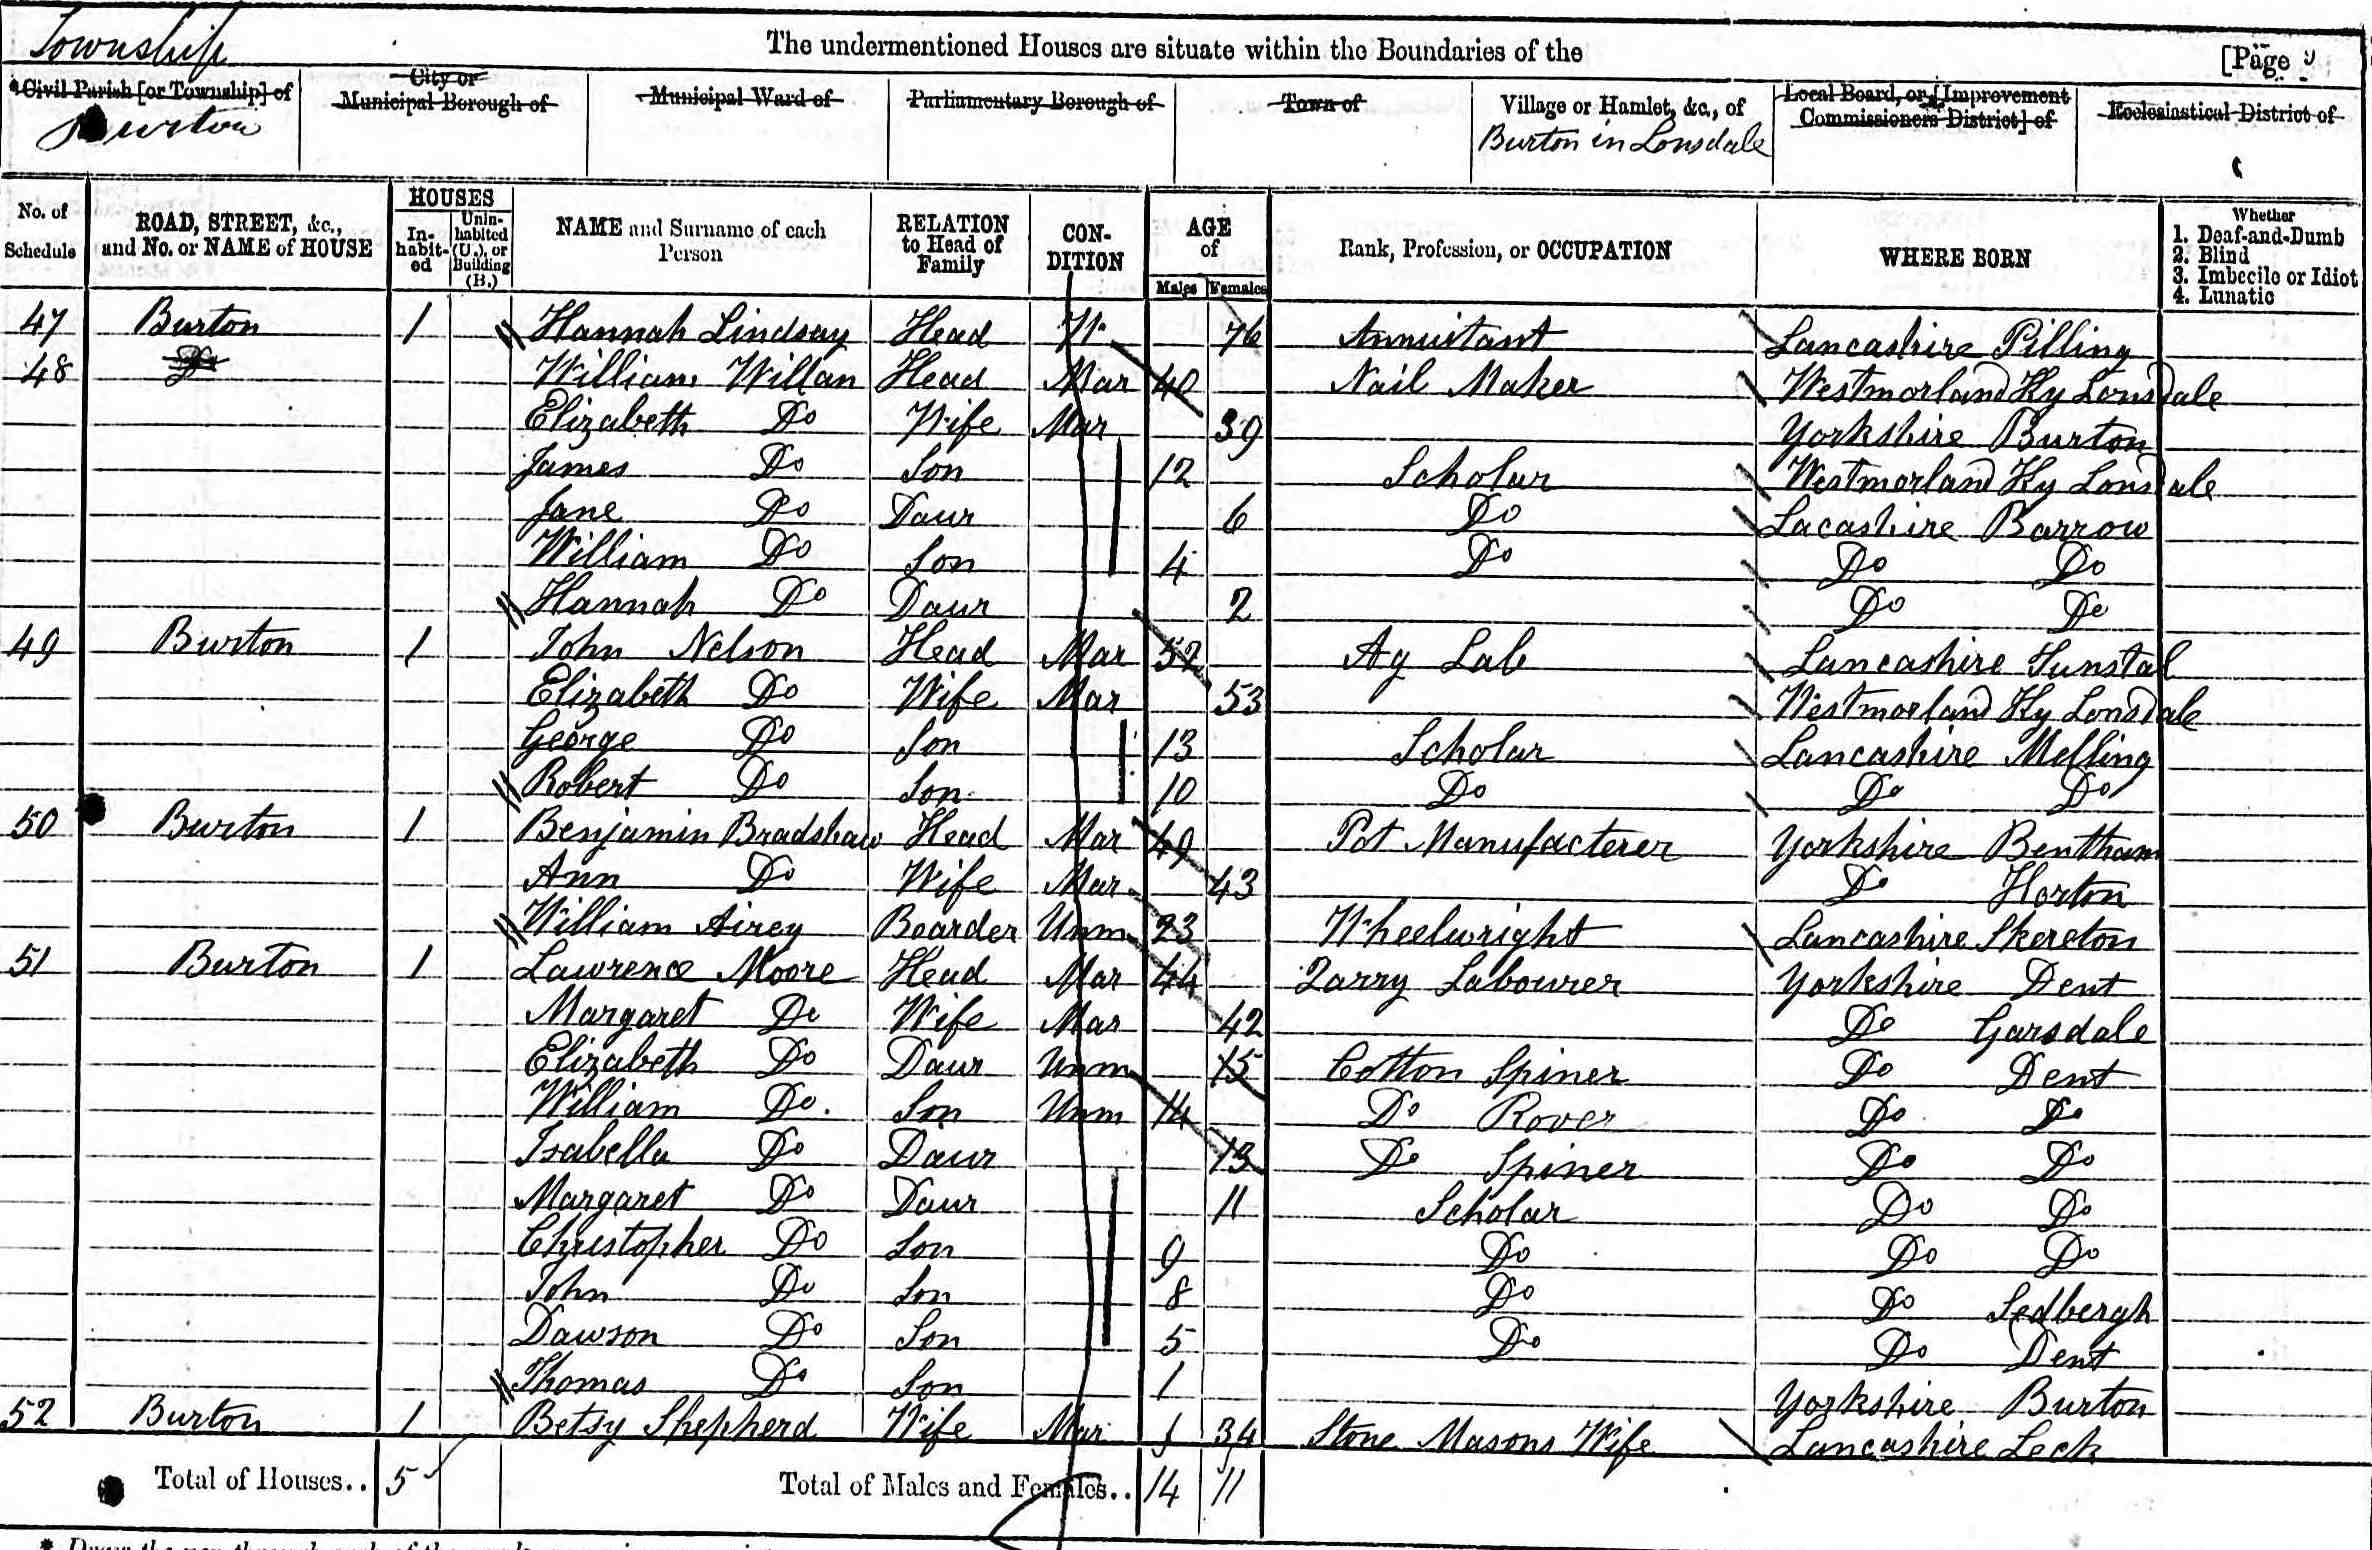 Township
The undermentioned Houses are situate within the Boundaries of the
[Page 9
Civil Parish [or Township] of
Burton
City or Municipal Borough of
Municipal Ward of
Parliamentary Borough of
Town of
Village or Hamlet, &c., of
Burton in Lonsdale
Local Board, or [Improvement Commissioners District] of
Ecclesiastical District of
No. of Schedule
ROAD, STREET, &c., and No. or NAME of HOUSE
HOUSES
In-habit-ed
Unin-habited (U.), or Building (B.)
NAME and Surname of each Person
RELATION to Head of Family
CON-DITION
AGE of
Males Females
Rank, Profession, or OCCUPATION
WHERE BORN
Whether
1. Deaf-and-Dumb
2. Blind
3. Imbecile or Idiot
4. Lunatic
47 Burton 1 Hannah Lindsay Head W. 76 Annuitant Lancashire Pilling
48 Do William Willan Head Mar 40 Nail Maker Westmorland Ky Lonsdale
Elizabeth Do Wife Mar 39 Yorkshire Burton
James Do Son 12 Scholar Westmorland Ky Lonsdale
Jane Do Daur 6 Do Lacashire Barrow
William Do Son 4 Do Do Do
Hannah Do Daur 2 Do Do
49 Burton 1 John Nelson Head Mar 52 Ag Lab Lancashire Tunstal
Elizabeth Do Wife Mar 53 Westmorland Ky Lonsdale
George Do Son 13 Scholar Lancashire Melling
Robert Do Son 10 Do Do Do
50 Burton 1 Benjamin Bradshaw Head Mar 49 Pot Manufacterer Yorkshire Bentham
Ann Do Wife Mar 43 Do Horton
William Airey Boarder Unm 23 Wheelwright Lancashire Skereton
51 Burton 1 Lawrence Moore Head Mar 44 Qarry Labourer Yorkshire Dent
Margaret Do Wife Mar 42 Do Garsdale
Elizabeth Do Daur Unm 15 Cotton Spiner Do Dent
William Do. Son Unm 14 Do Rover Do Do
Isabella Do Daur 13 Do Spiner Do Do
Margaret Do Daur 11 Scholar Do Do
Christopher Do Son 9 Do Do Do
John Do Son 8 Do Do Sedbergh
Dawson Do Son 5 Do Do Dent
Thomas Do Son 1 Yorkshire Burton
52 Burton 1 Betsy Shepherd Wife Mar 34 Stone Masons Wife Lancashire Leck
Total of Houses.. 5 Total of Males and Females.. 14 11